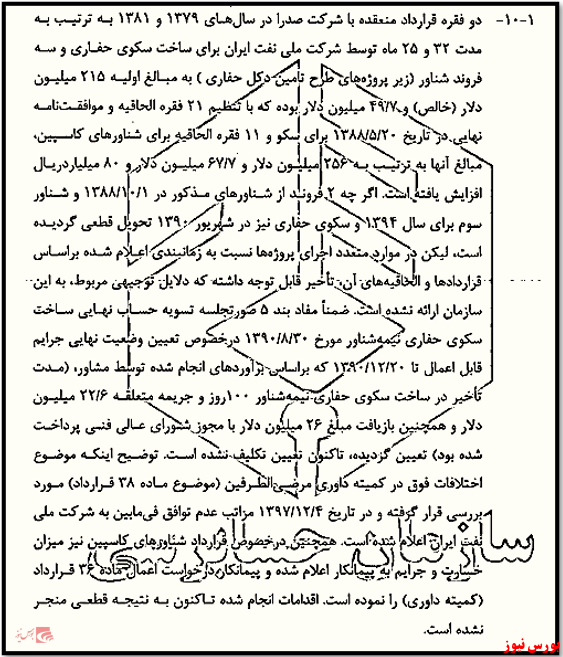 ۱-۱۰- دو فقره قرارداد منعقده با شرکت صدرا در سال‌های ۱۳۷۹ و ۱۳۸۱ به ترتیب به
مدت ۳۲ و ۲۵ ماه توسط شرکت ملی نفت ایران برای ساخت سکوی حفاری و سه
فروند شناور (زیر پروژه‌های طرح تامین دکل حفاری ) به مبالغ اولیه ۲۱۵ میلیون
دلار (خالص) و ۴۹/۷ میلیون دلار بوده که با تنظیم ۲۱ فقره الحاقیه و موافقت‌نامه
نهایی در تاریخ ۱۳۸۸/۵/۲۰ برای سکو و ۱۱ فقره الحاقیه برای شناورهای کاسپین،
مبالغ آنها به ترتیب به ۲۵۶ میلیون دلار و ۶۷/۷ میلیون دلار و ۸۰ میلیاردریال
افزایش یافته است. اگر چه ۲ فروند از شناورهای مذکور در ۱۳۸۸/۱۰/۱ و شناور
سوم برای سال ۱۳۹۴ و سکوی حفاری نیز در شهریور ۱۳۹۰ تحویل قطعی گردیده
است، لیکن در موارد متعدد اجرای پروژه‌ها نسبت به زمانبندی اعلام شده براساس
قراردادها و الحاقیه‌های آن، تأخیر قابل توجه داشته که دلایل توجیهی مربوط، به این
سازمان ارائه نشده است. ضمناً مفاد بند ۵ صورتجلسه تسویه حساب نهایی ساخت
سکوی حفاری نیمه‌شناور مورخ ۱۳۹۰/۸/۳۰ درخصوص تعیین وضعیت نهایی جرایم
قابل اعمال تا ۱۳۹۰/۱۲/۲۰ که براساس برآوردهای انجام شده توسط مشاور، (مدت
تأخیر در ساخت سکوی حفاری نیمه‌شناور ۱۰۰روز و جریمه متعلقه ۲۲/۶ میلیون
دلار و همچنین بازیافت مبلغ ۲۶ میلیون دلار با مجوز شورای عالی فنی پرداخت
شده بود) تعیین گردیده، تاکنون تعیین تکلیف نشده است. توضیح اینکه موضوع
اختلافات فوق در کمیته داوری مرضی‌الطرفین (موضوع ماده ۳۸ قرارداد) مورد
بررسی قرار گرفته و در تاریخ ۱۳۹۷/۱۲/۴ مراتب عدم توافق فی‌مابین به شرکت ملی
نفت ایران اعلام شده است. همچنین درخصوص قرارداد شناورهای کاسپین نیز میزان
خسارت و جرایم به پیمانکار اعلام شده و پیمانکار درخواست اعمال ماده ۳۶ قرارداد
(کمیته داوری) را نموده است. اقدامات انجام شده تاکنون به نتیجه قطعی منجر
نشده است.
سازمان حسابرسی
بورس نیوز
بورس نیوز